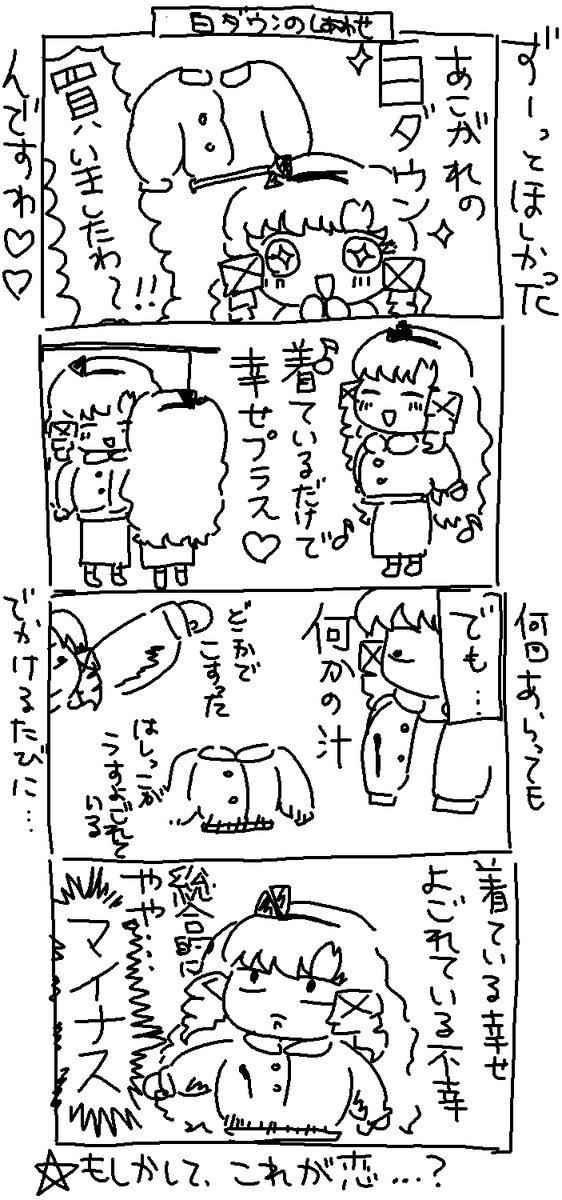 白ダウンのしあわせ
ずーってほしかった
あこがれの
白ダウン
買いましたわ〜!!
んですわ♡♡
着ているだけで
幸せプラス♡
でも…
何かの汁
どこかで
こすった
はしっこが
うすよごれて
いる
何回あらっても
でかけるたびに…
着ている幸せ
よごれている不幸
総合的に
やや…
マイナス
☆もしかして、これが恋…?